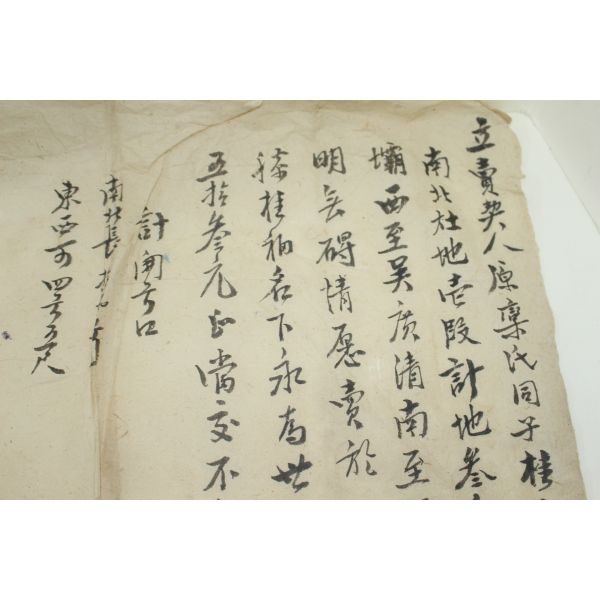 立賣契人原棗氏同子桂
南北社地壱段計地叁
壩西至吴廣清南至
明無碍情愿賣於
桂袖名下永為世
五拾叁元正當交不
計開弓口
南北長
東西可四弓五尺